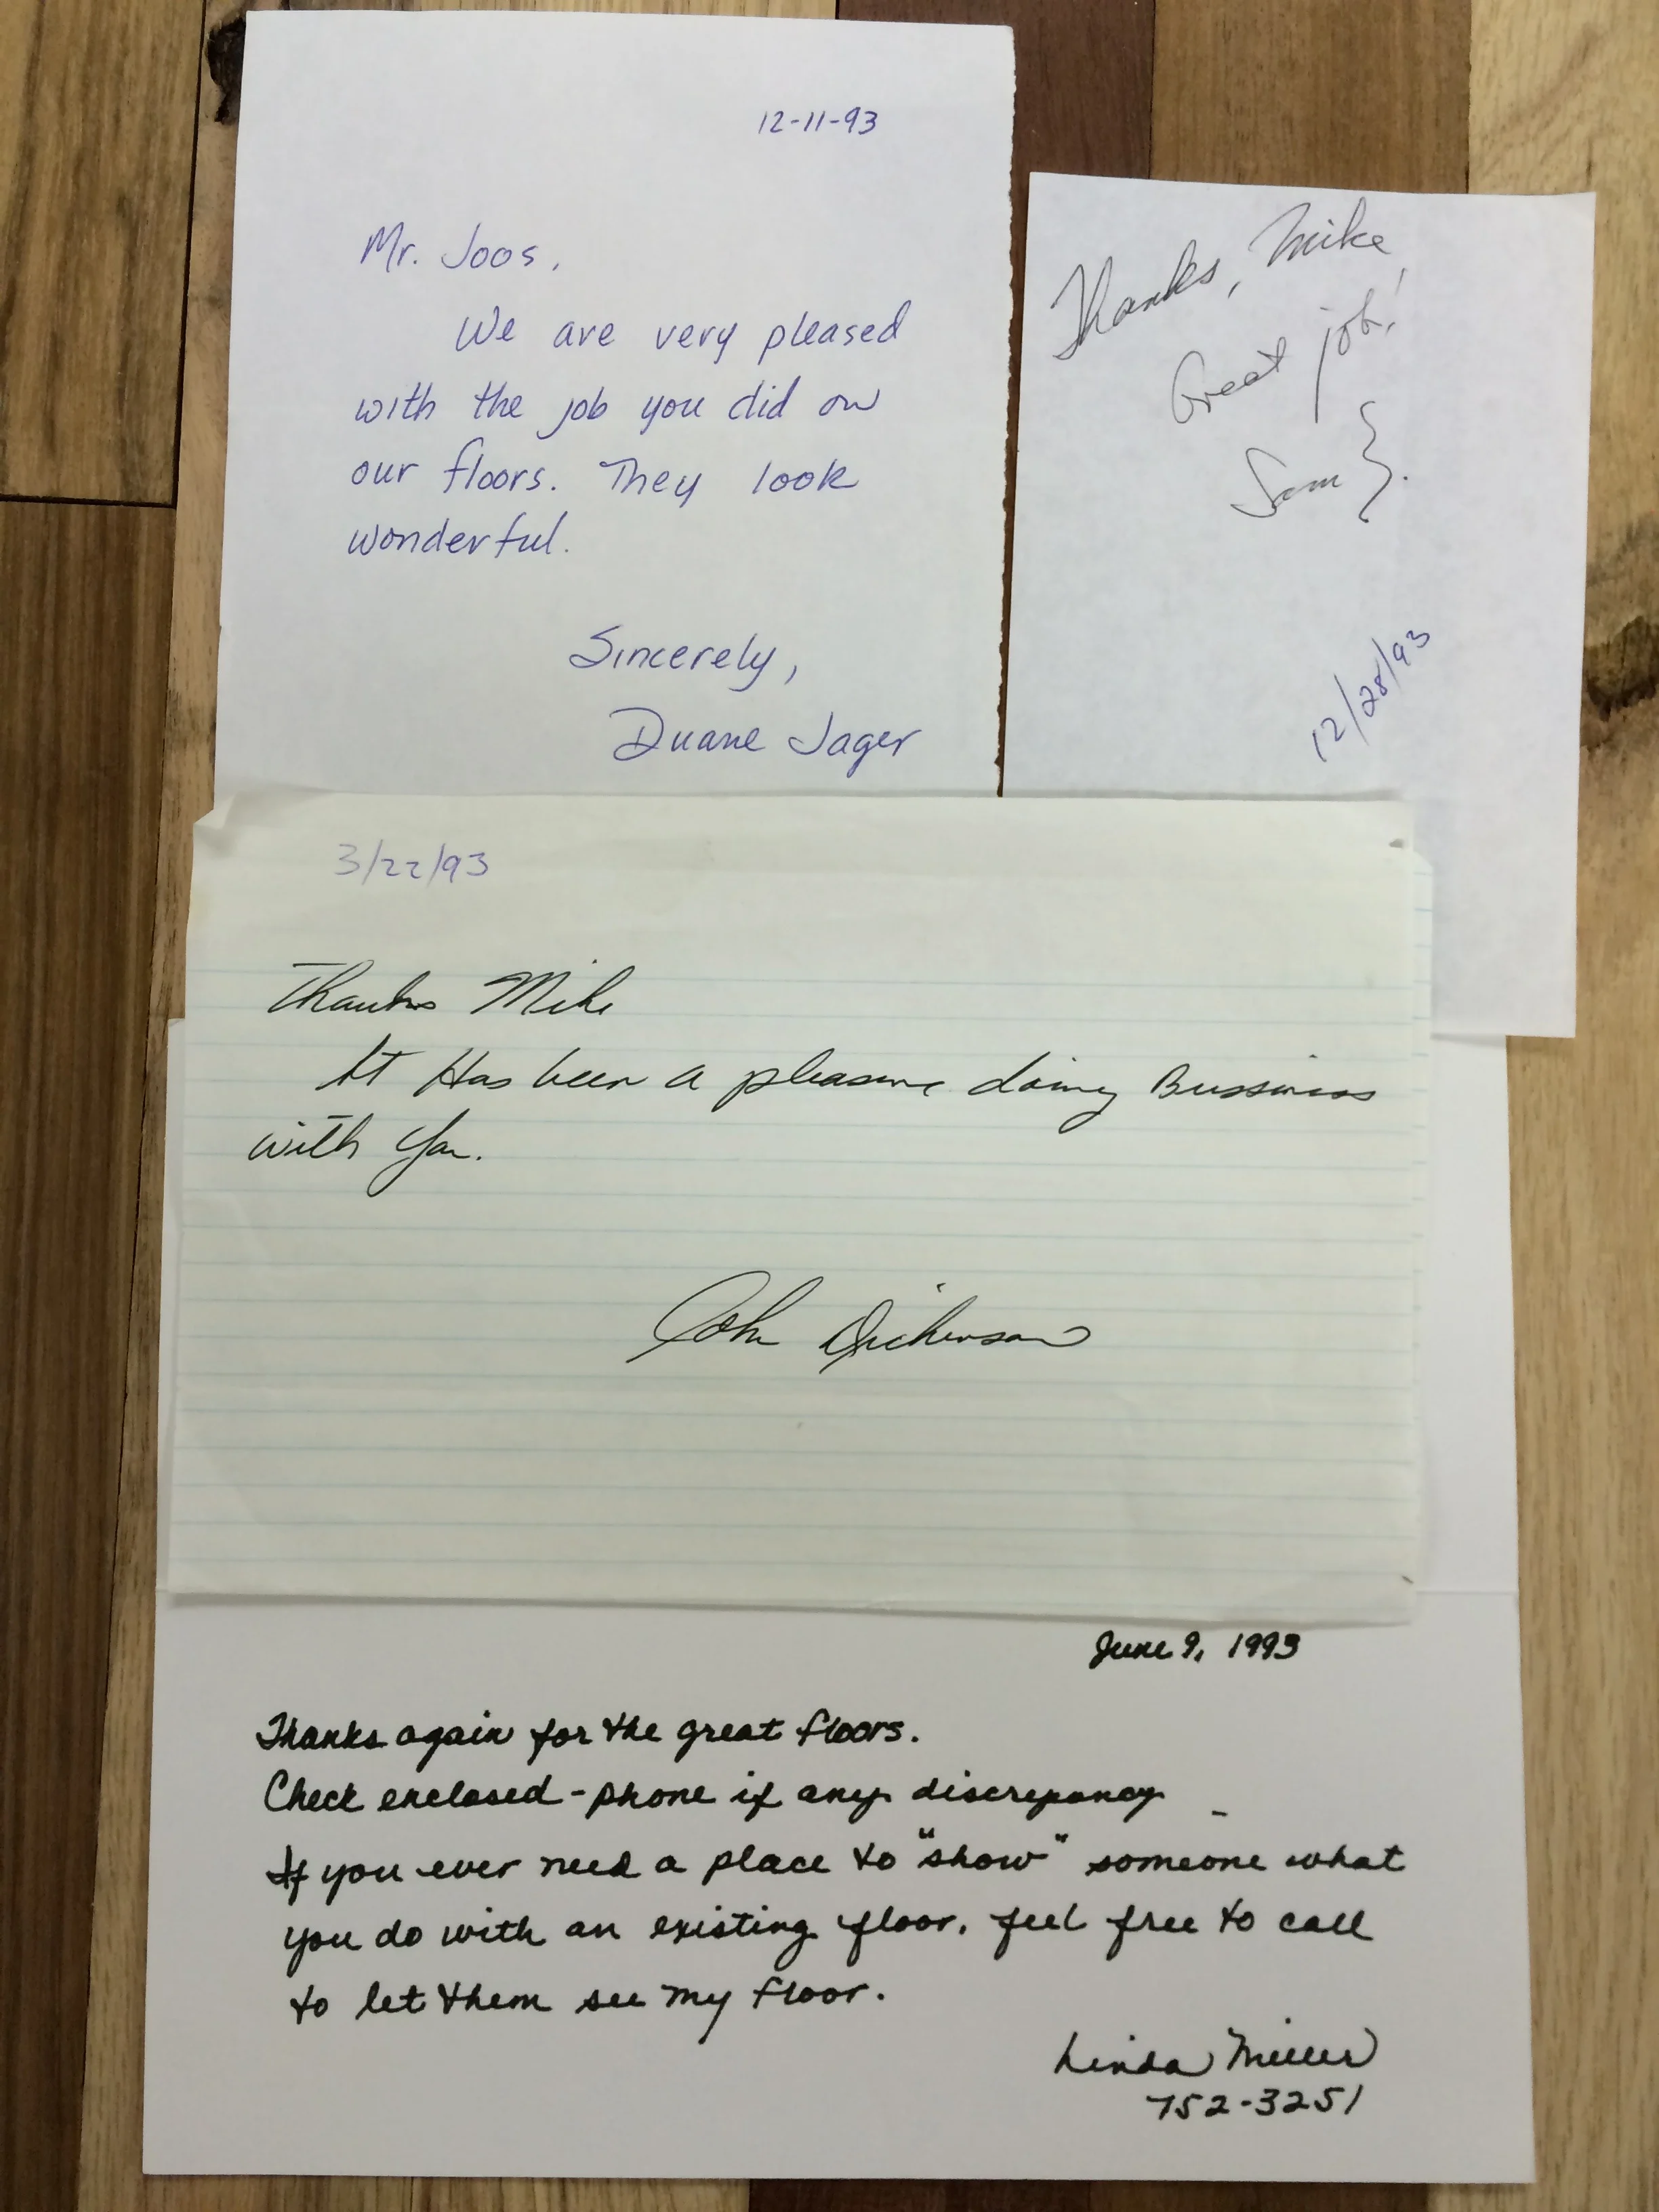 12-11-93
Mr. Joos,
We are very pleased
with the job you did on
our floors. They look
wonderful.
Sincerely,
Duane Jager
Thanks, Mike
Great job!
Sam J.
12/28/93
3/22/93
Thanks Mike
It Has been a pleasure doing Bussiness
with You.
John Dickinson
June 9, 1993
Thanks again for the great floors.
Check enclosed - phone if any discrepancy
If you ever need a place to "show" someone what
you do with an existing floor, feel free to call
to let them see my floor.
Linda Miller
752-3251